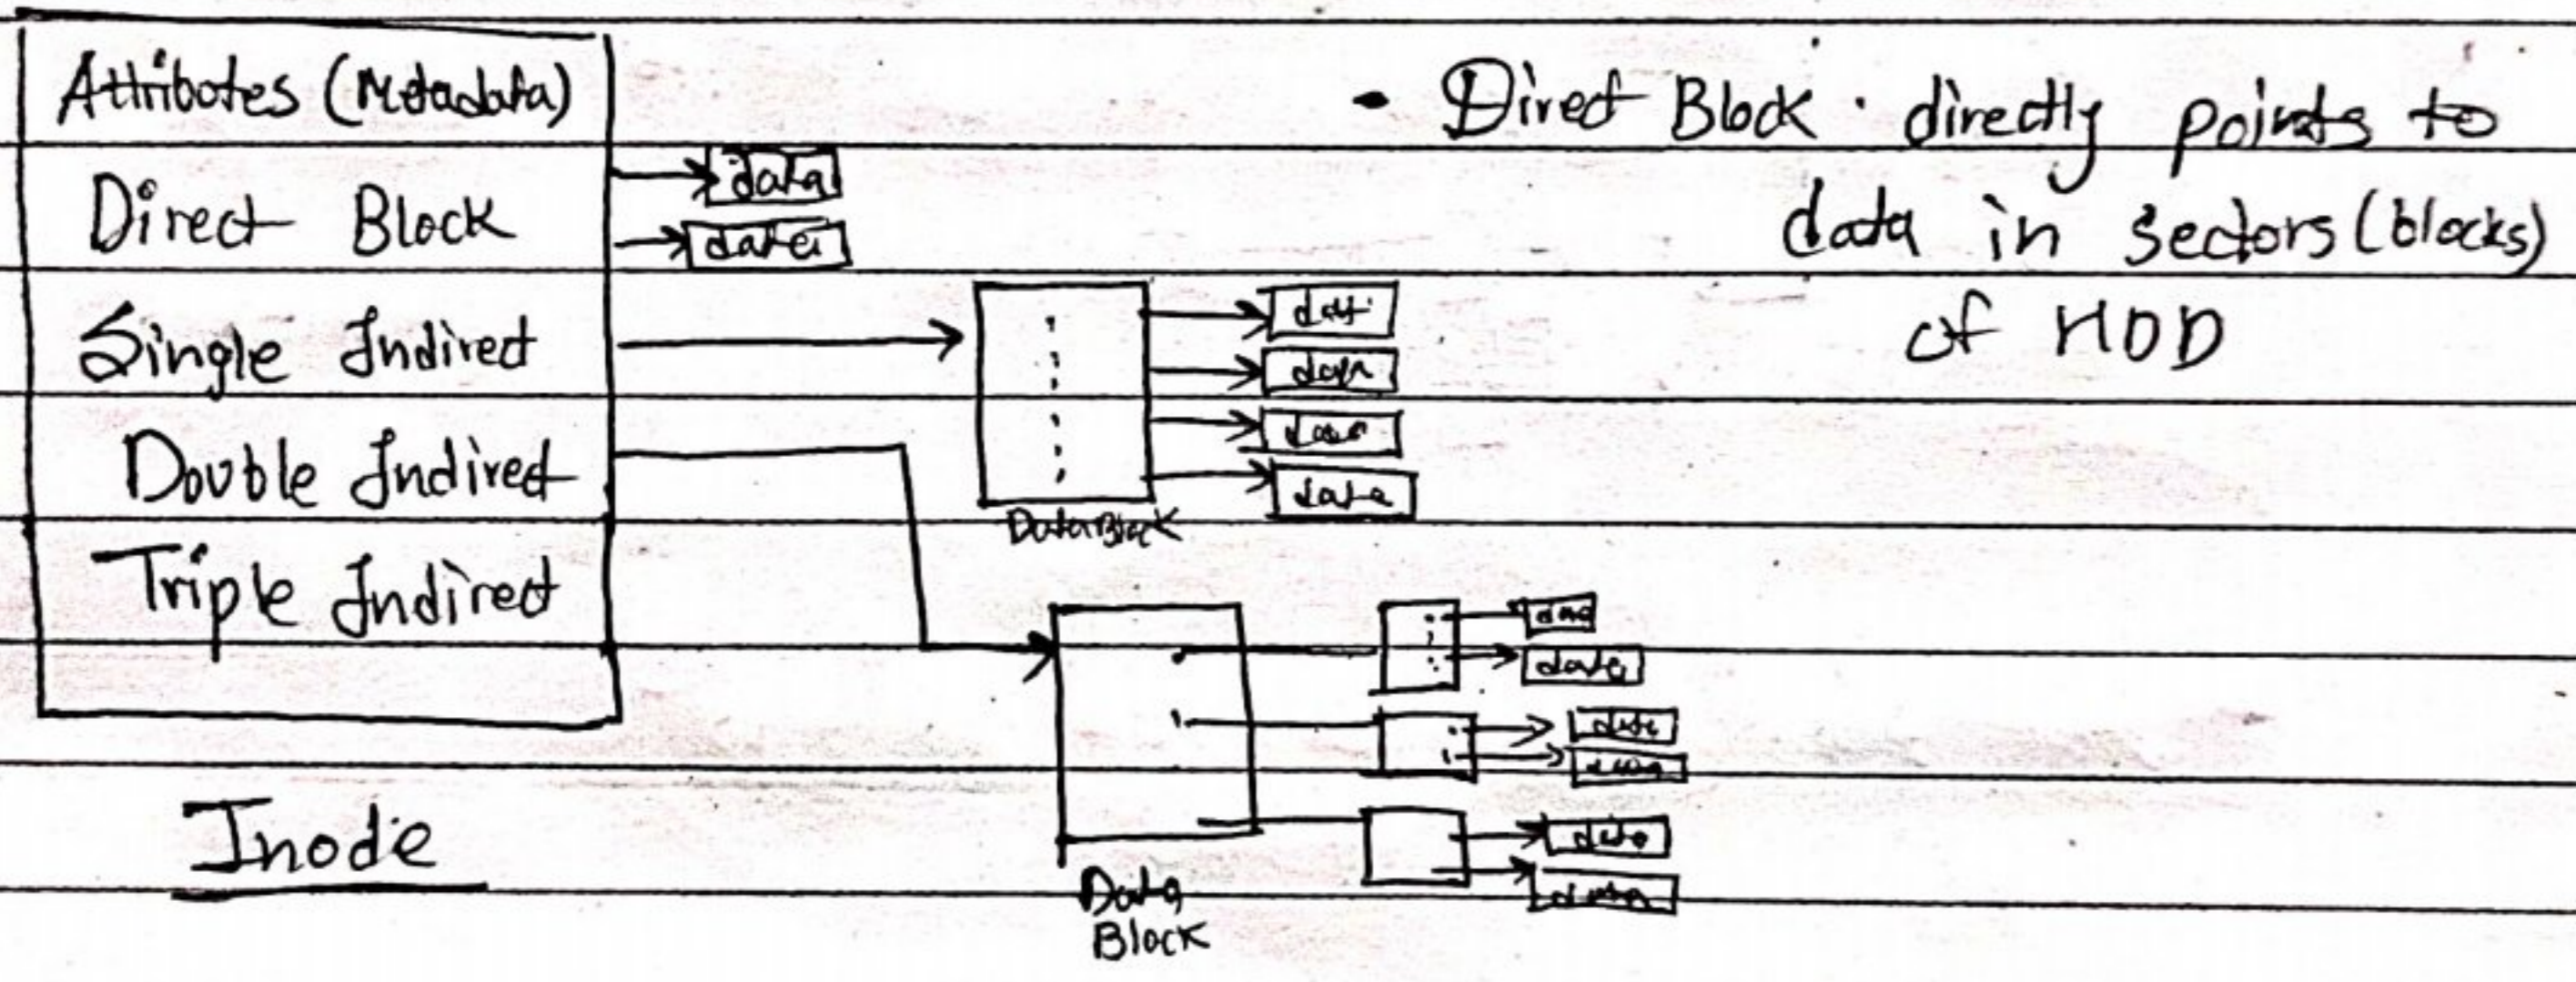 Attributes (Metadata)
Direct Block
Single Indirect
Double Indirect
Triple Indirect
Inode
data
data
data
data
data
Data Block
data
data
data
data
Data
Block
• Direct Block · directly points to
data in sectors (blocks)
of HDD